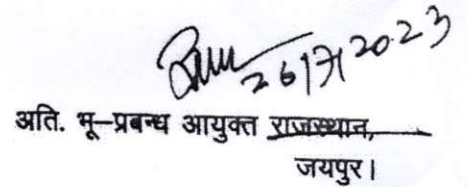 26/7/2023
अति. भू–प्रबन्ध आयुक्त राजस्थान,
जयपुर।